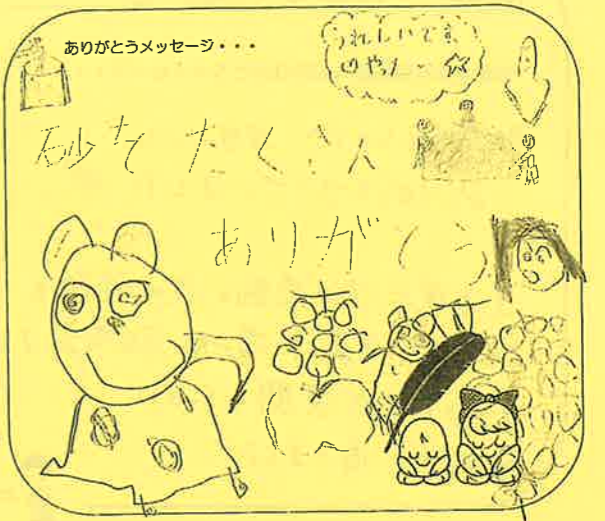 ありがとうメッセージ・・・
うれしいです
やったー☆
砂をたくさん
ありがとう